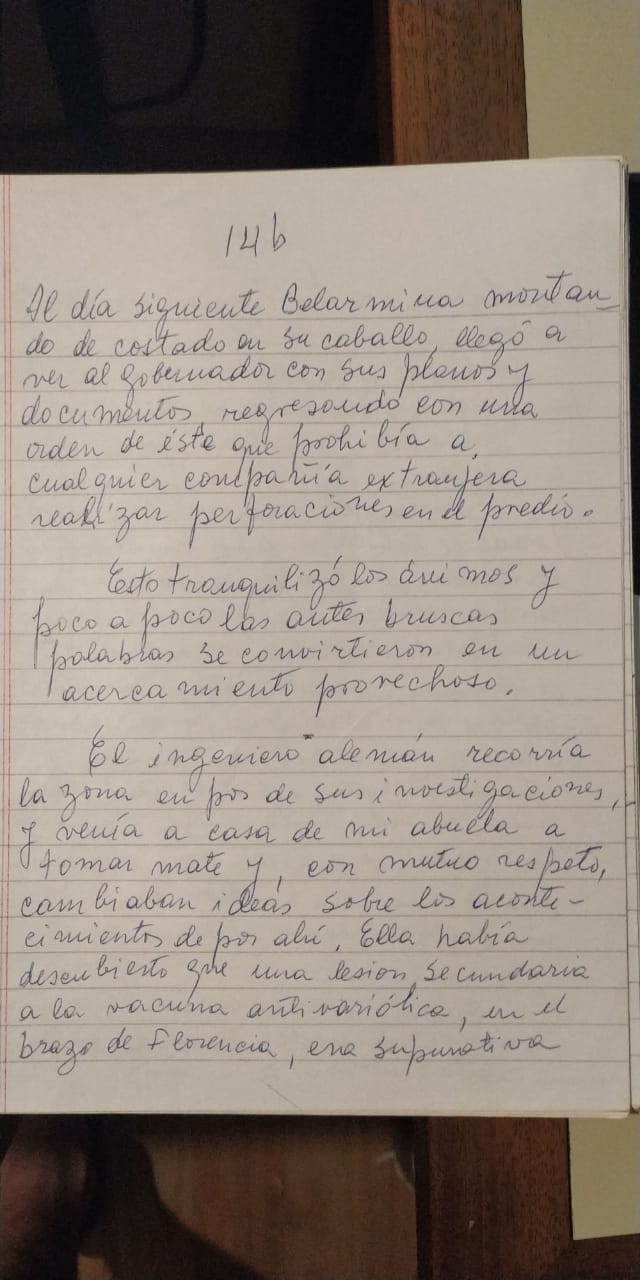 14b
Al día siguiente Belarmina montan_
do de costado en su caballo, llegó a
ver al gobernador con sus planos y
documentos, regresando con una
orden de éste que prohibía a
cualquier compañía extranjera
realizar perforaciones en el predio.
Esto tranquilizó los ánimos y
poco a poco las antes bruscas
palabras se convirtieron en un
acercamiento provechoso.
El ingeniero alemán recorría
la zona en pos de sus investigaciones,
y venía a casa de mi abuela a
tomar mate y, con mutuo respeto,
cambiaban ideas sobre los aconte-
cimientos de por ahí. Ella había
descubierto que una lesion secundaria
a la vacuna antivariólica, en el
brazo de Florencia, era supurativa